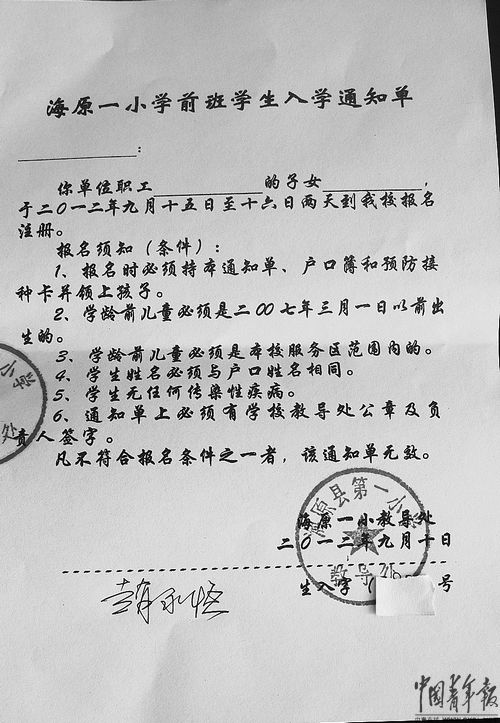 海原一小学前班学生入学通知单
:
你单位职工 的子女 ,
于二〇一二年九月十五日至十六日两天到我校报名
注册。
报名须知(条件):
1、报名时必须持本通知单、户口簿和预防接
种卡并领上孩子。
2、学龄前儿童必须是二〇〇七年三月一日以前出
生的。
3、学龄前儿童必须是本校服务区范围内的。
4、学生姓名必须与户口姓名相同。
5、学生无任何传染性疾病。
6、通知单上必须有学校教导处公章及负
责人签字。
凡不符合报名条件之一者,该通知单无效。
海原县第一小
海原一小教导处
二〇一二年九月十日
教导处
生入字( 号
小
处
中国青年报